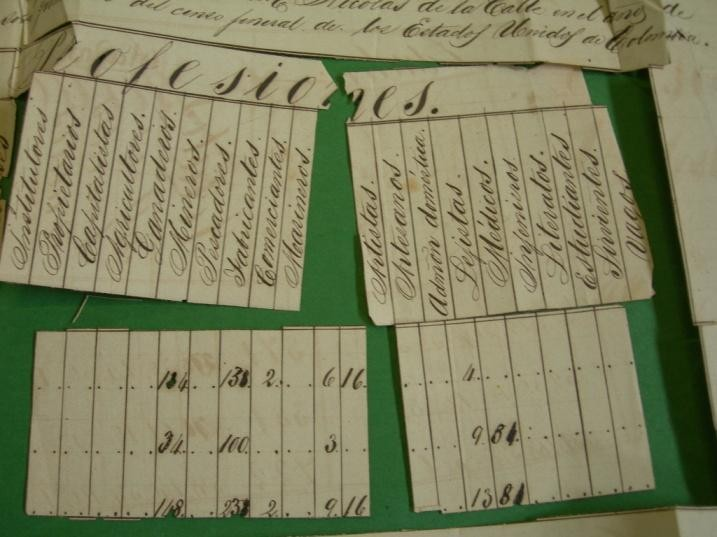 Nicolas de la Calle en el año de
del censo jeneral de los Estados Unidos de Colombia.
ofesiones.
Institutores
Propietarios
Capitalistas
Agricultores.
Ganaderos.
Mineros.
Pescadores.
Fabricantes.
Comerciantes.
Marineros.
Artistas.
Artesanos.
Admon doméstica.
Lejistas.
Médicos.
Injenieros.
Literatos.
Estudiantes
Sirvientes
Vagos
138 2 6 16
4
34 100 3
9 81
118 238 2 9 16
13 81